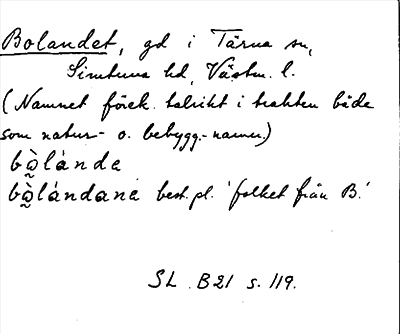 Bolandet, gd i Tärna sn,
Simtuna hd, Västm. l.
(Namnet förek. talrikt i trakten både
som natur- o. bebygg.-namn.)
bò̰lánde
bò̰lándana best. pl. 'folket från B.'
SL. B21 s. 119.